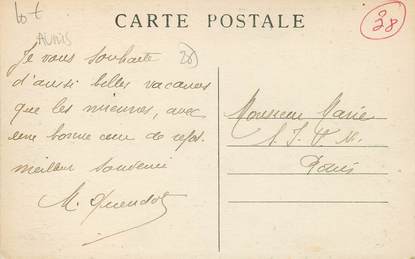 lot
CARTE POSTALE
38
Je vous souhaite
d'aussi belles vacances
que les miennes, avec
une bonne cure de repos.
meilleur souvenir
Monsieur
Paris